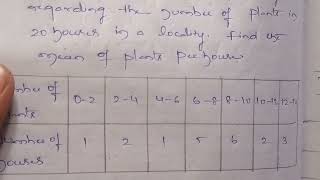 regarding the number of plants in
20 houses in a locality. Find the
mean of plants per house
number of plants 0-2 2-4 4-6 6-8 8-10 10-12 12-14
number of houses 1 2 1 5 6 2 3